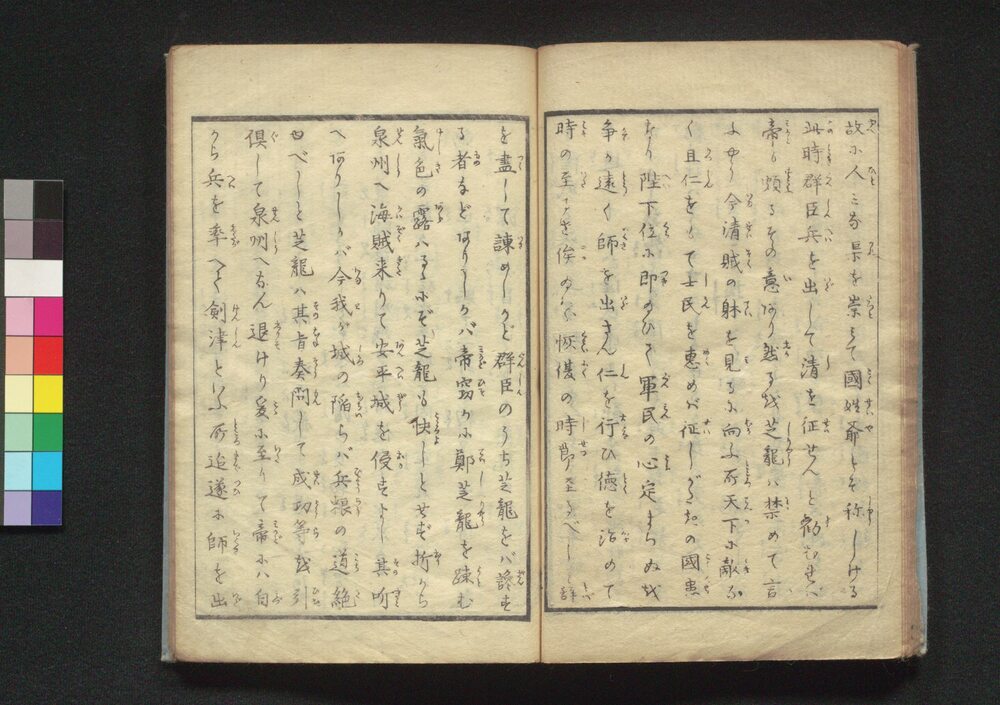 故に人こな是を崇えて國姓爺とぞ称しける
此時群臣兵を出して清を征せんと勧むれば
帝も頗るその意あり然るを芝龍ハ禁めて言
やう今清賊の躰を見るに向ふ所天下に敵な
く且仁をもて士民を恵めバ征しがたきの國患
なり陛下位に即のひて軍民の心定まらぬを
争か遠く師を出さん仁を行ひ徳を治めて
時の至るを俟のハゞ恢復の時節至るべしと辞
を盡して諌めしかど群臣のうち芝龍をバ讒する
る者などありしかバ帝窃かに鄭芝龍を疎む
氣色の露ハるゝにぞ芝龍も快しとせず折から
泉州へ海賊来りて安平城を侵すよし其聞
へありしかバ今我が城の陥らバ兵粮の道絶
ゆべしと芝龍ハ其旨奏問して成功等を引
倶して泉州へなん退けり爰に至りて帝にハ自
から兵を率へて剣津といふ所迄遂に師を出